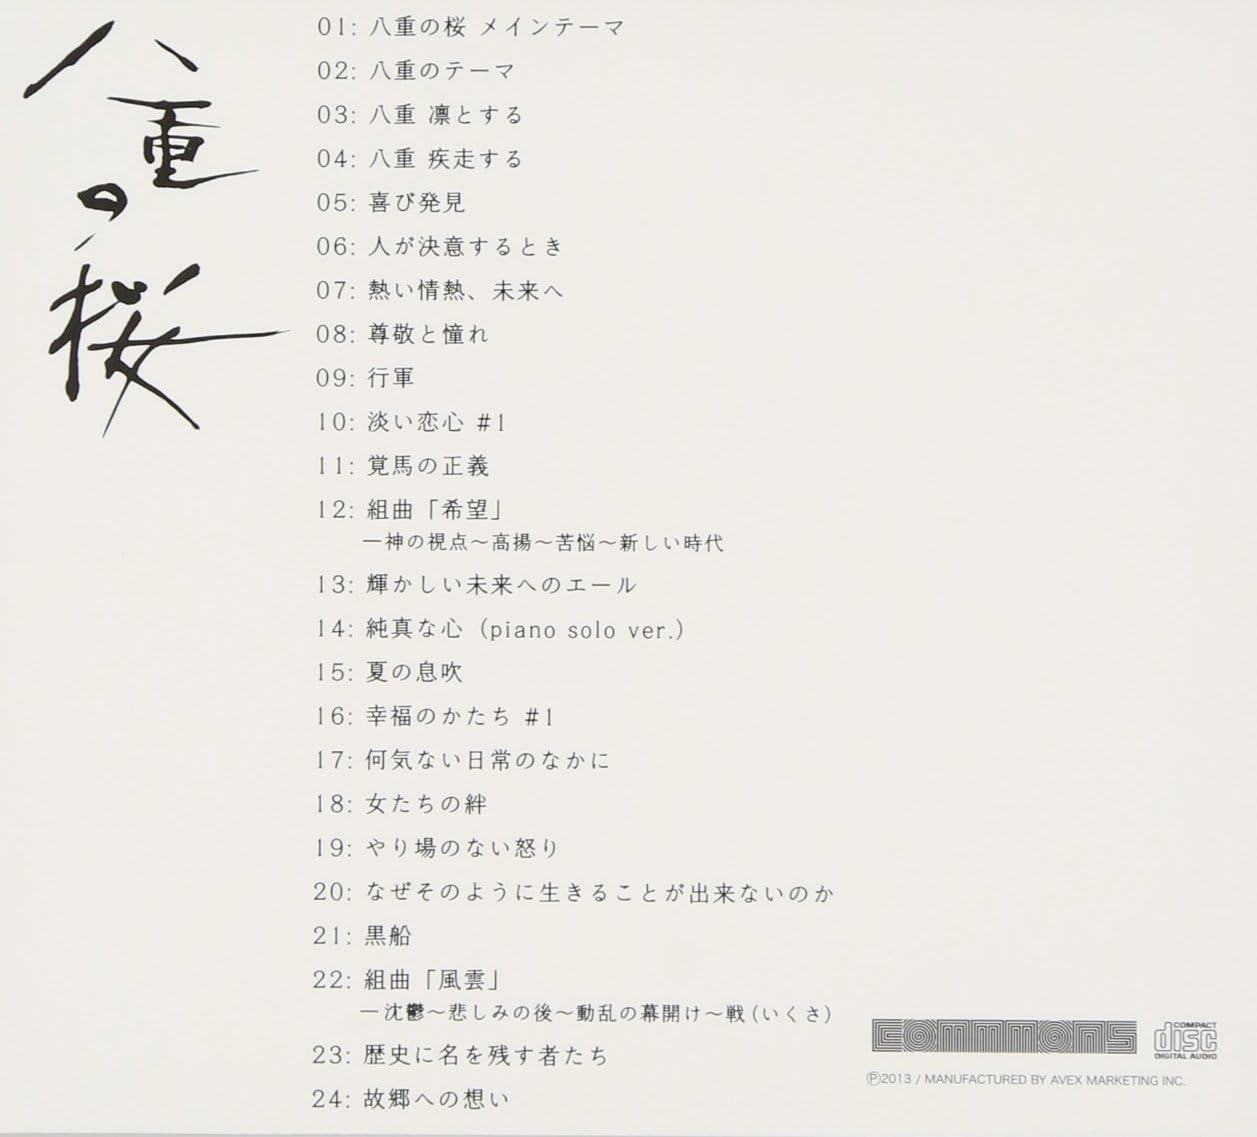 八重の桜
01: 八重の桜 メインテーマ
02: 八重のテーマ
03: 八重 凛とする
04: 八重 疾走する
05: 喜び発見
06: 人が決意するとき
07: 熱い情熱、未来へ
08: 尊敬と憧れ
09: 行軍
10: 淡い恋心 #1
11: 覚馬の正義
12: 組曲「希望」
―神の視点～高揚～苦悩～新しい時代
13: 輝かしい未来へのエール
14: 純真な心 (piano solo ver.)
15: 夏の息吹
16: 幸福のかたち #1
17: 何気ない日常のなかに
18: 女たちの絆
19: やり場のない怒り
20: なぜそのように生きることが出来ないのか
21: 黒船
22: 組曲「風雲」
―沈鬱～悲しみの後～動乱の幕開け～戦(いくさ)
23: 歴史に名を残す者たち
24: 故郷への想い
commmons
COMPACT disc DIGITAL AUDIO
Ⓟ2013 / MANUFACTURED BY AVEX MARKETING INC.